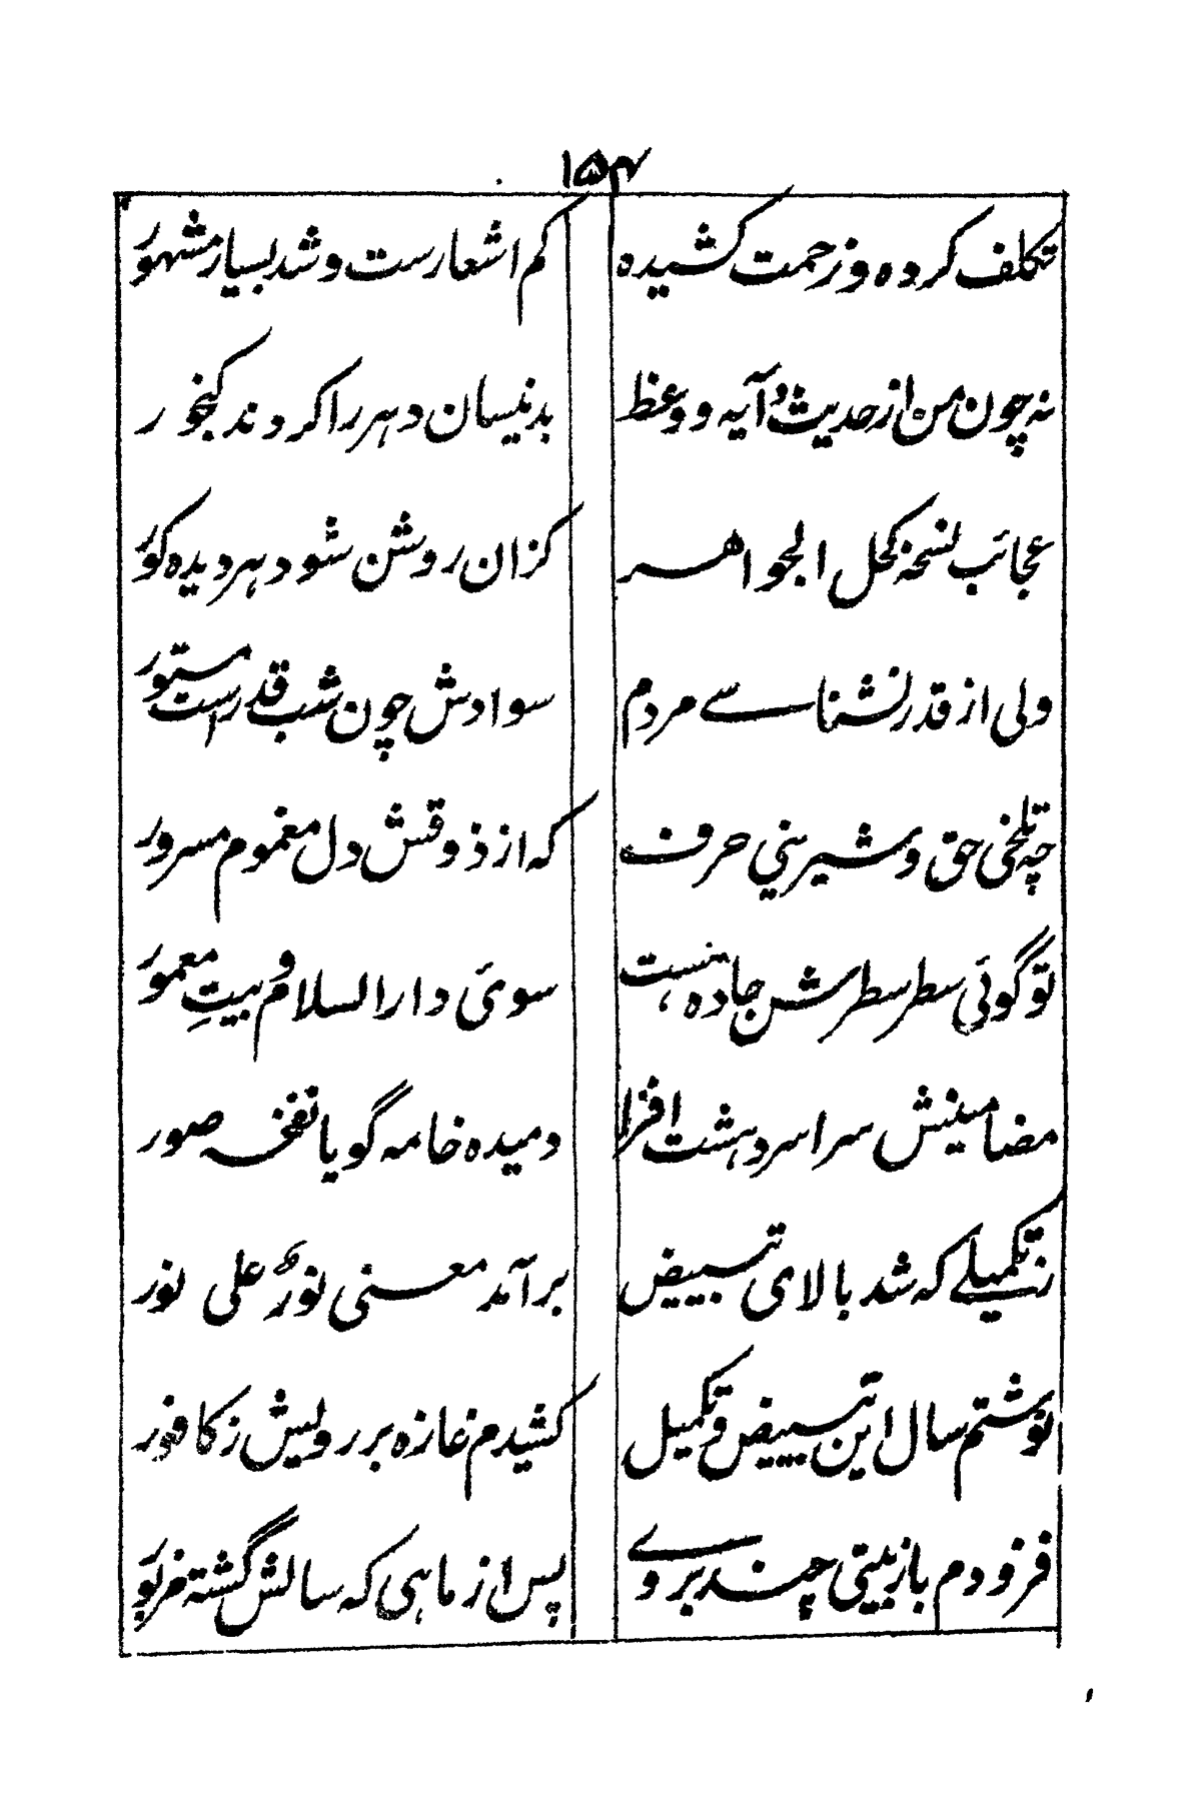 ۱۵۴
تکلف کرده و زحمت کشیده کم اشعارست و شد بسیار مشہور
نہ چون من از حدیث و آیہ و وعظ بدنیسان دہر را کردند گنجور
عجائب نسخۂ کحل الجواہر کزان روشن شود ہر دیدہ کور
ولی از قدر نشناسے مردم سوادش چون شب قدرست مستور
چہ تلخی حق و شیرینی حرف کہ از ذوقش دل مغموم مسرور
تو گوئی سطر سطرش جادہ ہست سوی دارالسلام و بیتِ معمور
مضامینش سراسر دہشت افزا دمیدہ خامہ گویا نفخہ صور
ز تکمیلے کہ شد بالای تبییض برآمد معنی نورٌ علی نور
نوشتم سال این تبییض و تکمیل کشیدم غازہ بر رویش ز کافور
فزودم باز بیتی چند بروے پس از ماہی کہ سالش گشتہ مزبور